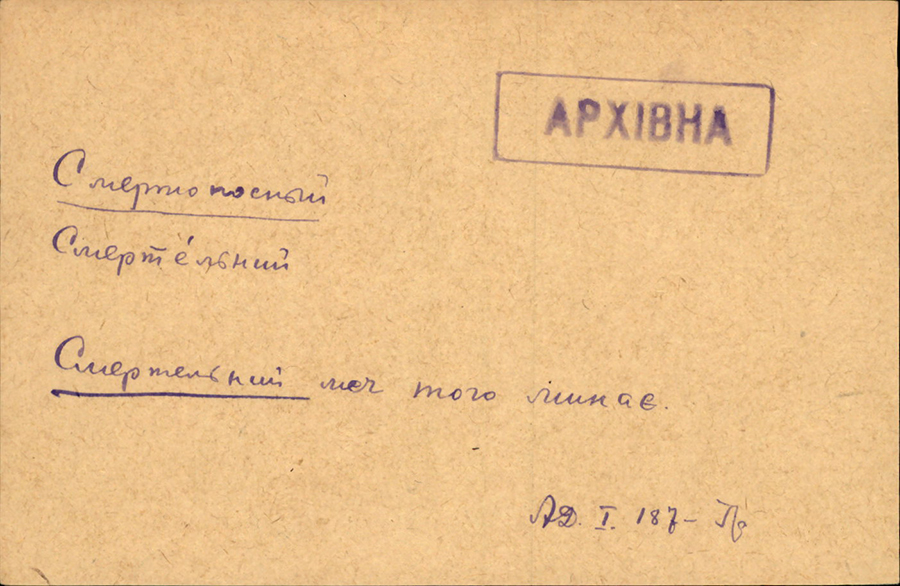 АРХІВНА
Смертоносный
Смерте́льний
Смертельний меч того минає.
АД. I. 187 –